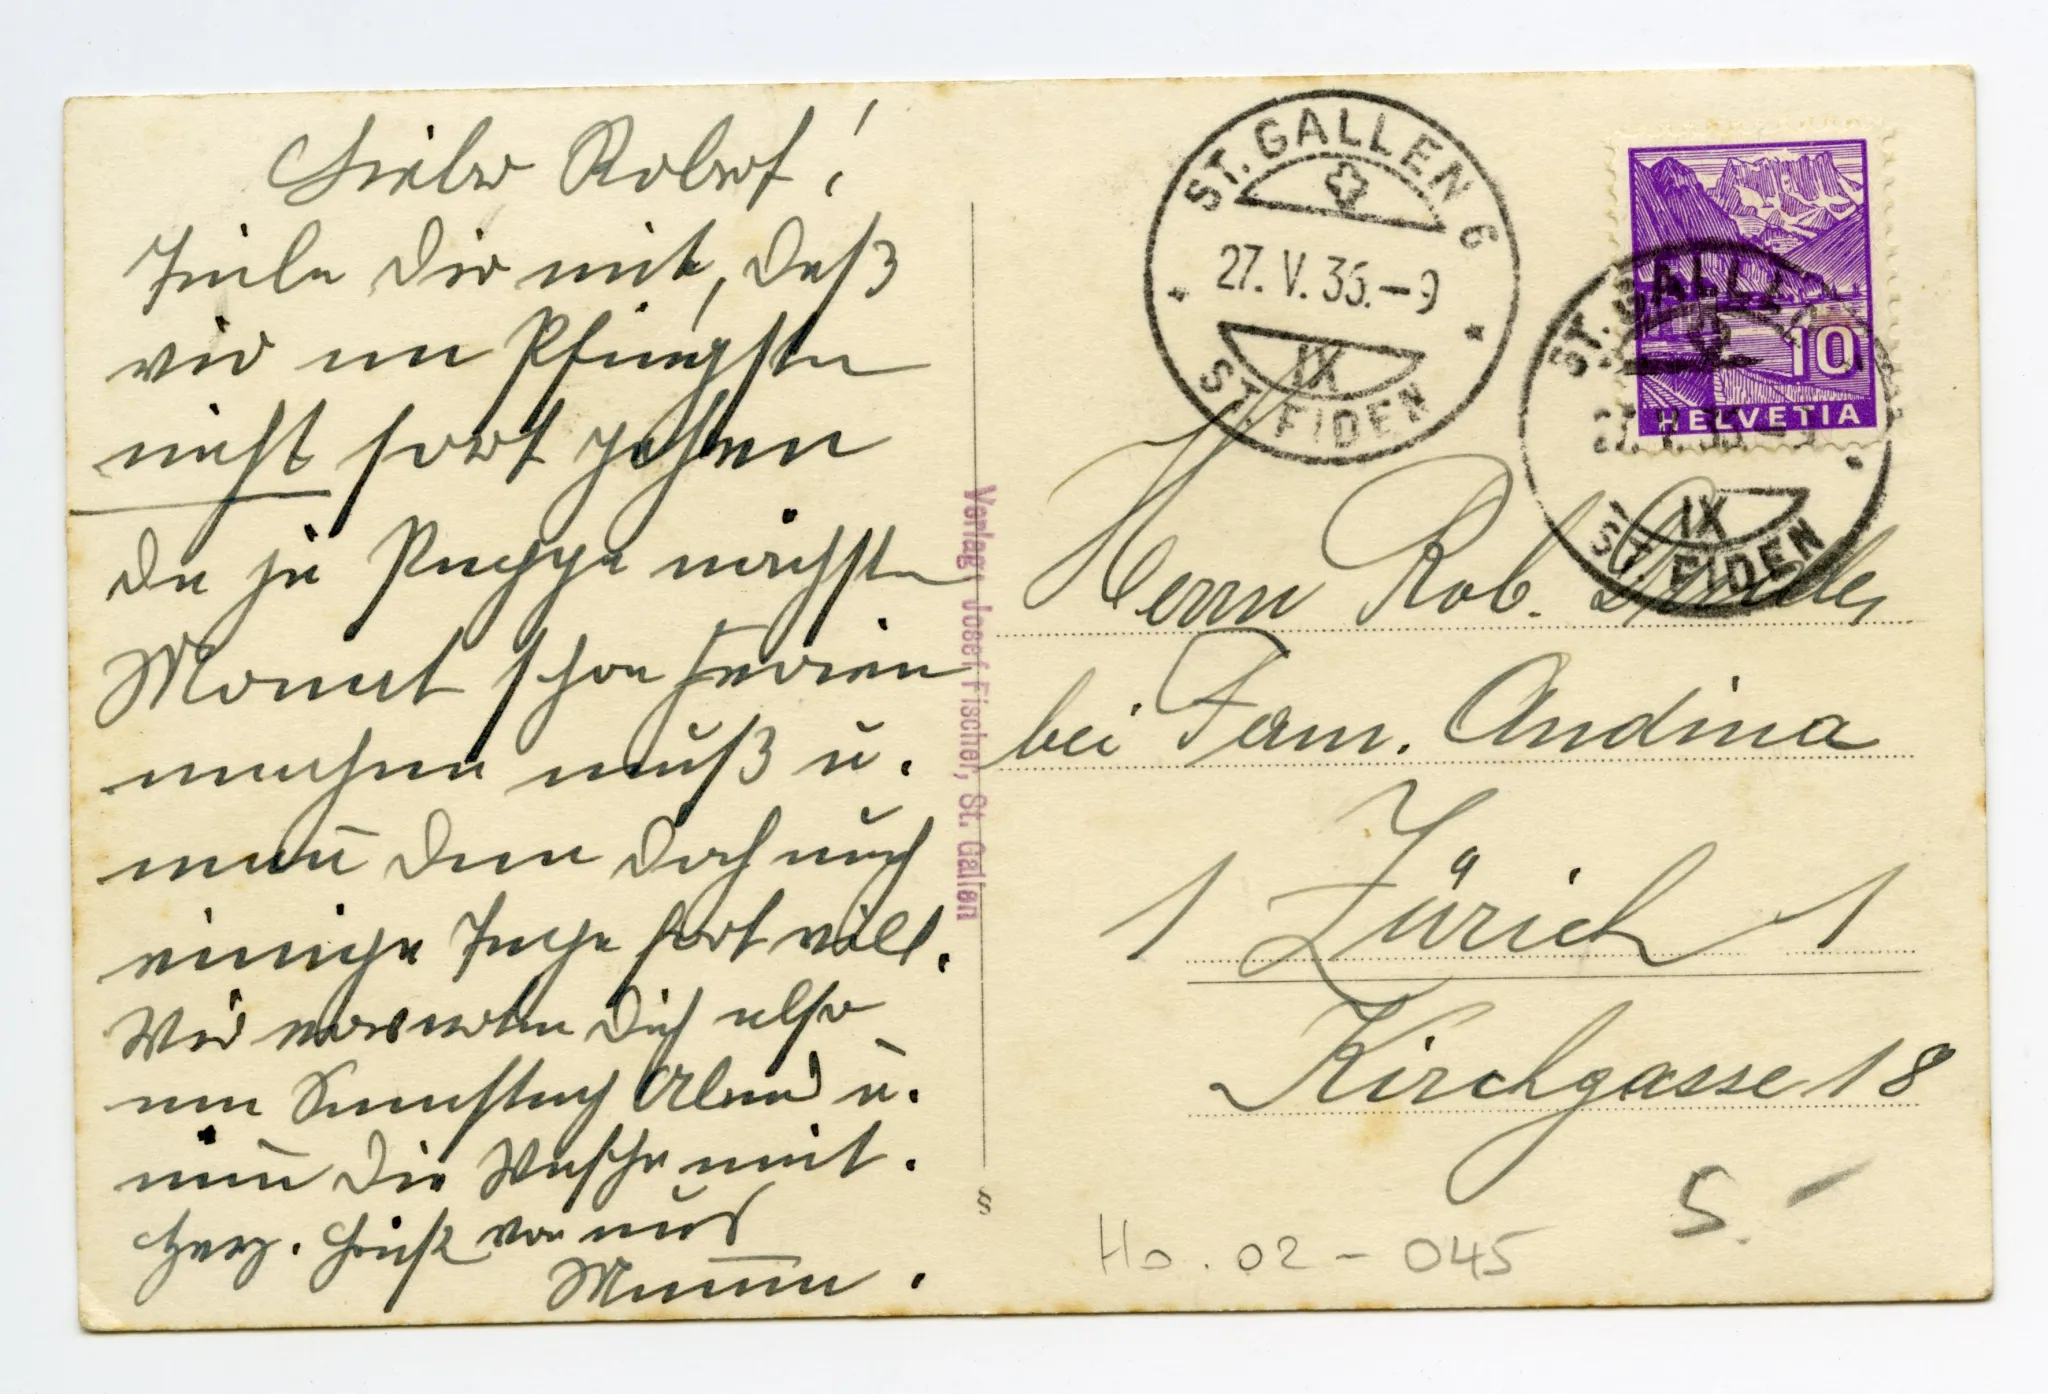 Lieber Robert!
Teile Dir mit, daß
wir an Pfingsten
nicht fort gehen
da ja Pappa nächsten
Monat schon Ferien
machen muß u.
man dann doch auch
einige Tage fort will.
Wir erwarten Dich also
am Samstag Abend u.
nim̄ die Wäsche mit.
Herz. Grüße von uns
Mama.
Verlag: Josef Fischer, St. Gallen
§
ST. GALLEN 6
27. V. 36. - 9
IX
ST. FIDEN
10
HELVETIA
ST. GALLEN
27. V. 36. - 9
IX
ST. FIDEN
Herrn Rob.
bei Fam. Andina
1 Zürich 1
Kirchgasse 18
5.-
Ho. 02 - 045